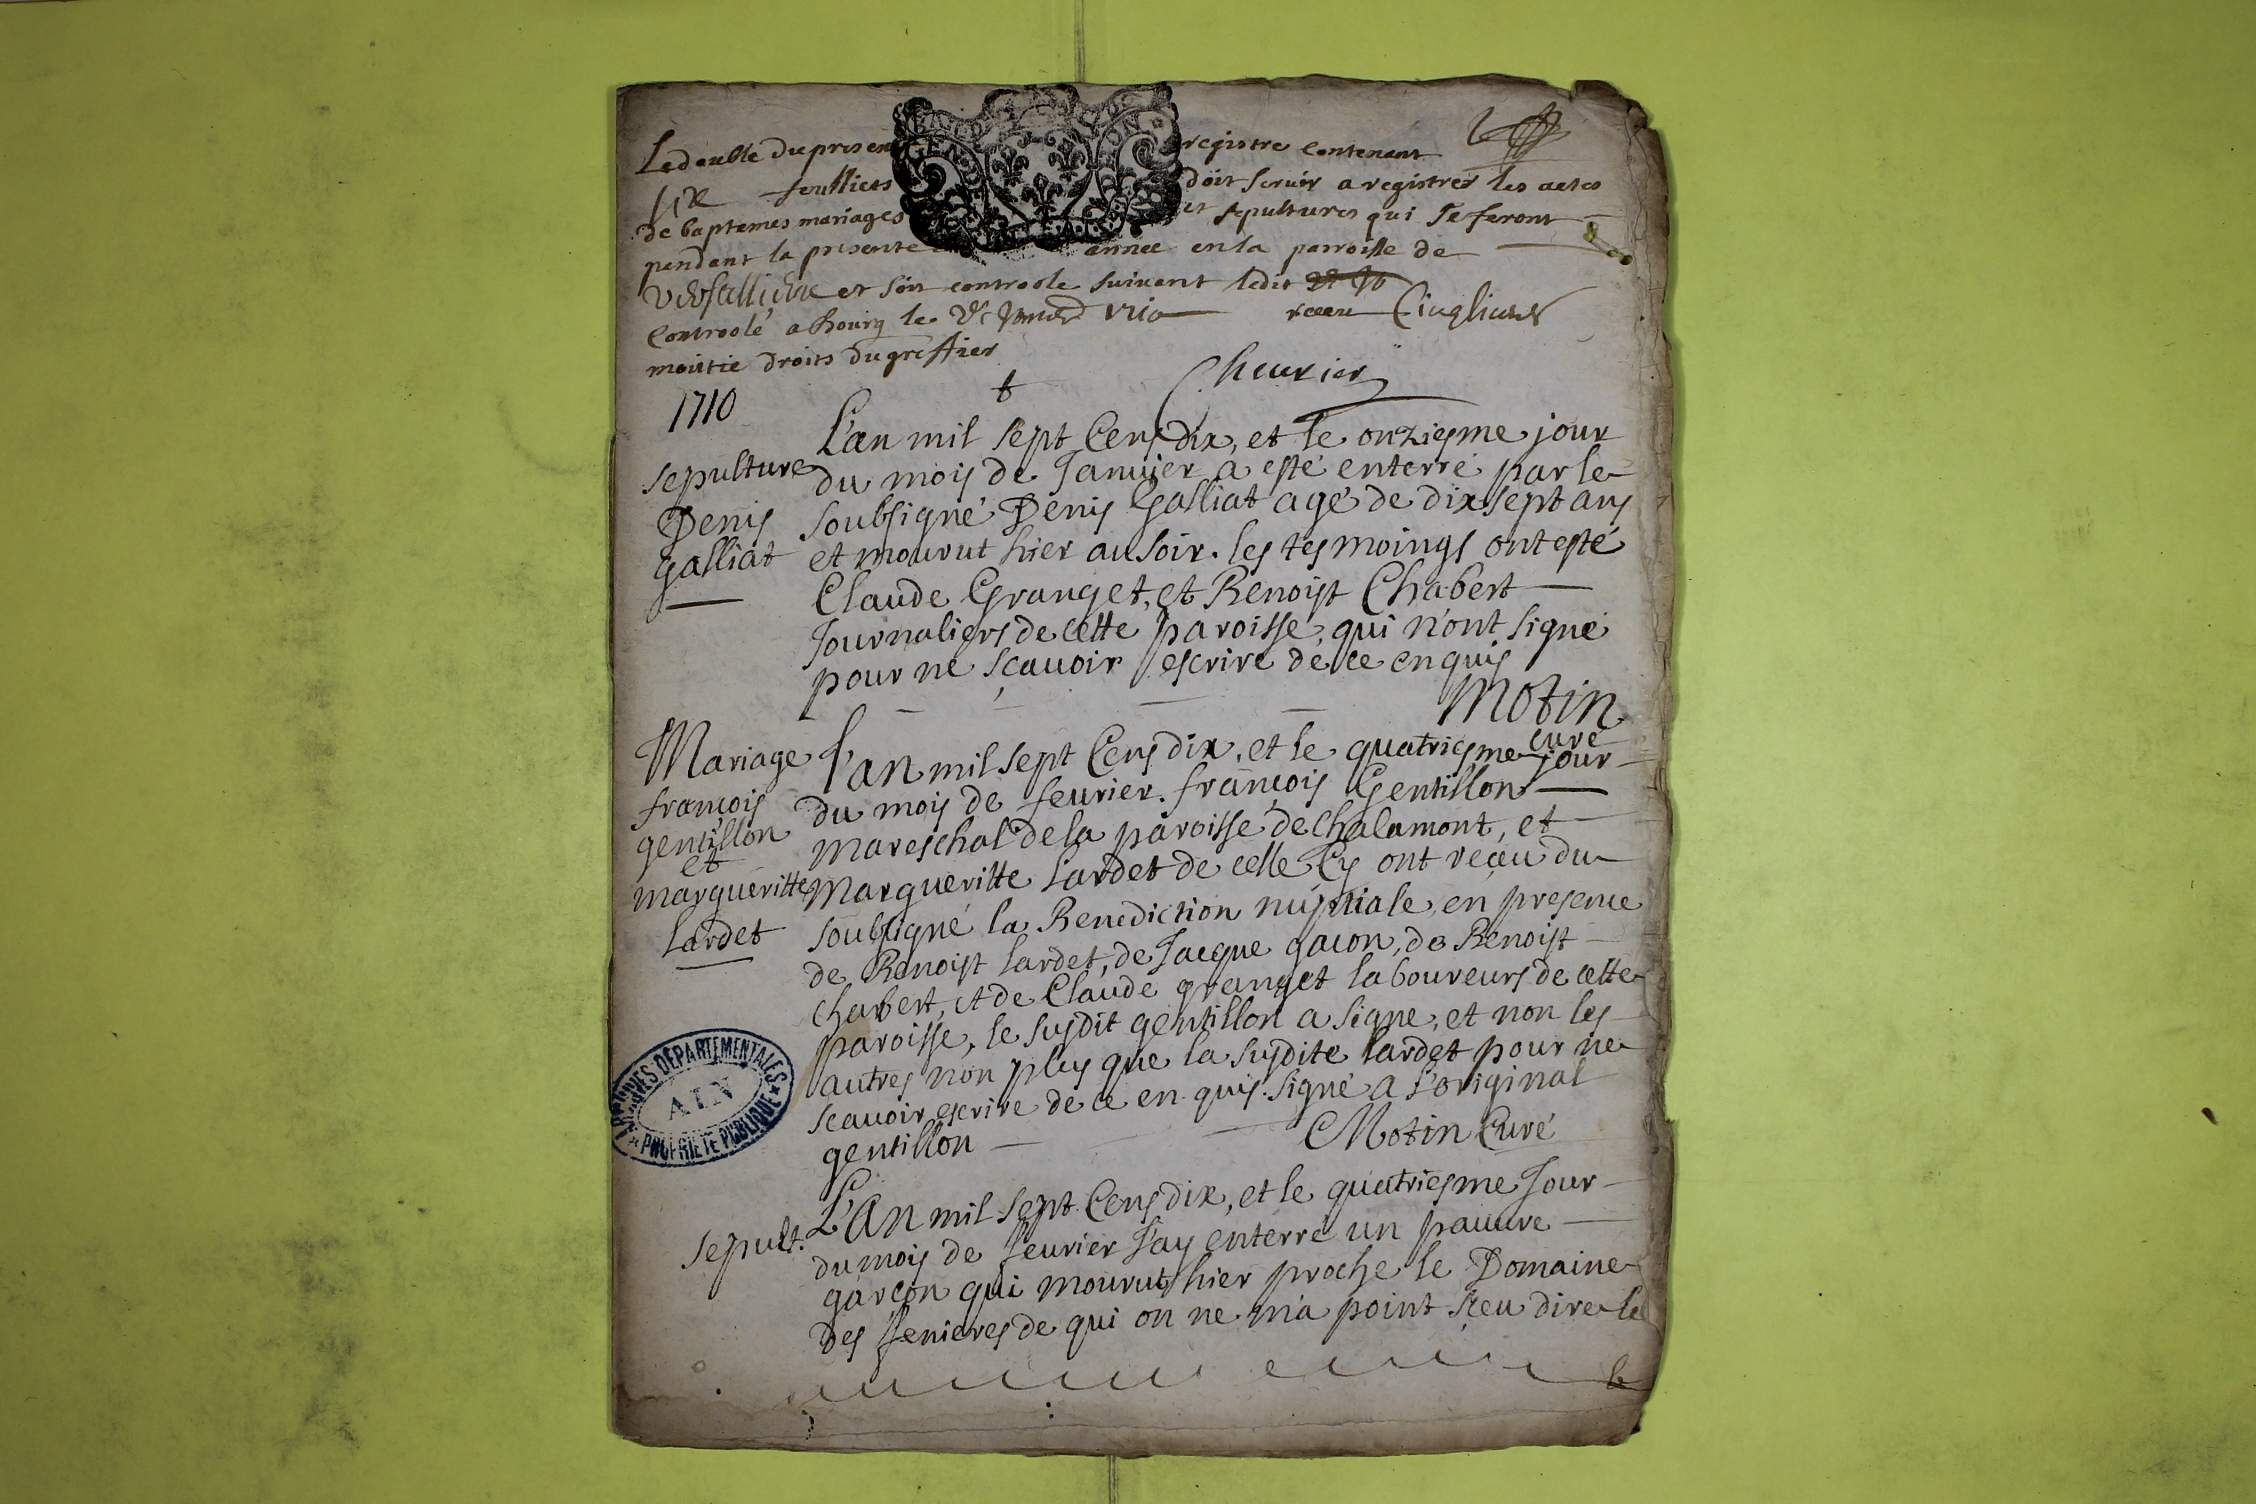 Le double du present registre contenant
six feulliets doit servir a registrer les actes
de baptemes mariages et sepultures qui se feront
pendant la presente année en la parroisse de
et soit controole suivant ledit
Controolé a bourg le 1710
moitie droits du greffier
Cheurier
1710
L'an mil sept Cens dix, et le onziesme jour
sepulture du mois de Januier a esté enterré par le
Denis soubsigné Denis Galliat agé de dix sept ans
galliat et mourut hier au soir. les tesmoings ont esté
Claude Granget, et Benoist Chabert
Journaliers de cette paroisse, qui n'ont signé
pour ne sçauoir escrire de ce enquis
Motin
curé
Mariage l'an mil sept Cens dix, et le quatriesme jour
francois du mois de feurier. françois Gentillon
gentillon mareschal de la paroisse de Chalamont, et
et
margueritte Margueritte Lardet de celle Cy ont reçeu du
Lardet soubsigné la Benediction nuptiale, en presence
de Benoist lardet, de Jacque gacon, de Benoist
chabert, et de Claude granget laboureurs de cette
paroisse, le susdit gentillon a signé, et non les
autres non plus que la susdite lardet pour ne
scauoir escrire de ce en quis. signé a l'original
gentillon Motin Curé
L'An mil sept Cens dix, et le quatriesme Jour
sepult. du mois de feurier J'ay enterré un pauure
garçon qui mourut hier proche le Domaine
des fenieres de qui on ne m'a point sceu dire le
ARCHIVES DÉPARTEMENTALES
AIN
PROPRIÉTÉ PUBLIQUE